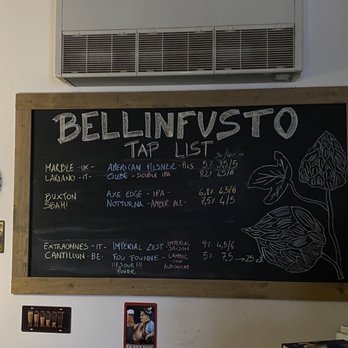 BELLINFUSTO
TAP LIST
MARBLE - UK - AMERICAN PILSNER - PILS 5% 3,5/5
LARIANO - IT - - DOUBLE IPA 8,2% 4,5/6
BUXTON AXE EDGE - IPA - 6,8% 4,5/6
SBAM! NOTTURNA - AMBER ALE - 7,5% 4/5
EXTRAOMNES - IT - IMPERIAL ZEST - IMPERIAL SAISON 9% 4,5/6
CANTILLON - BE - FOU FOUNNE - LAMBIC 5% 7,5 → 25